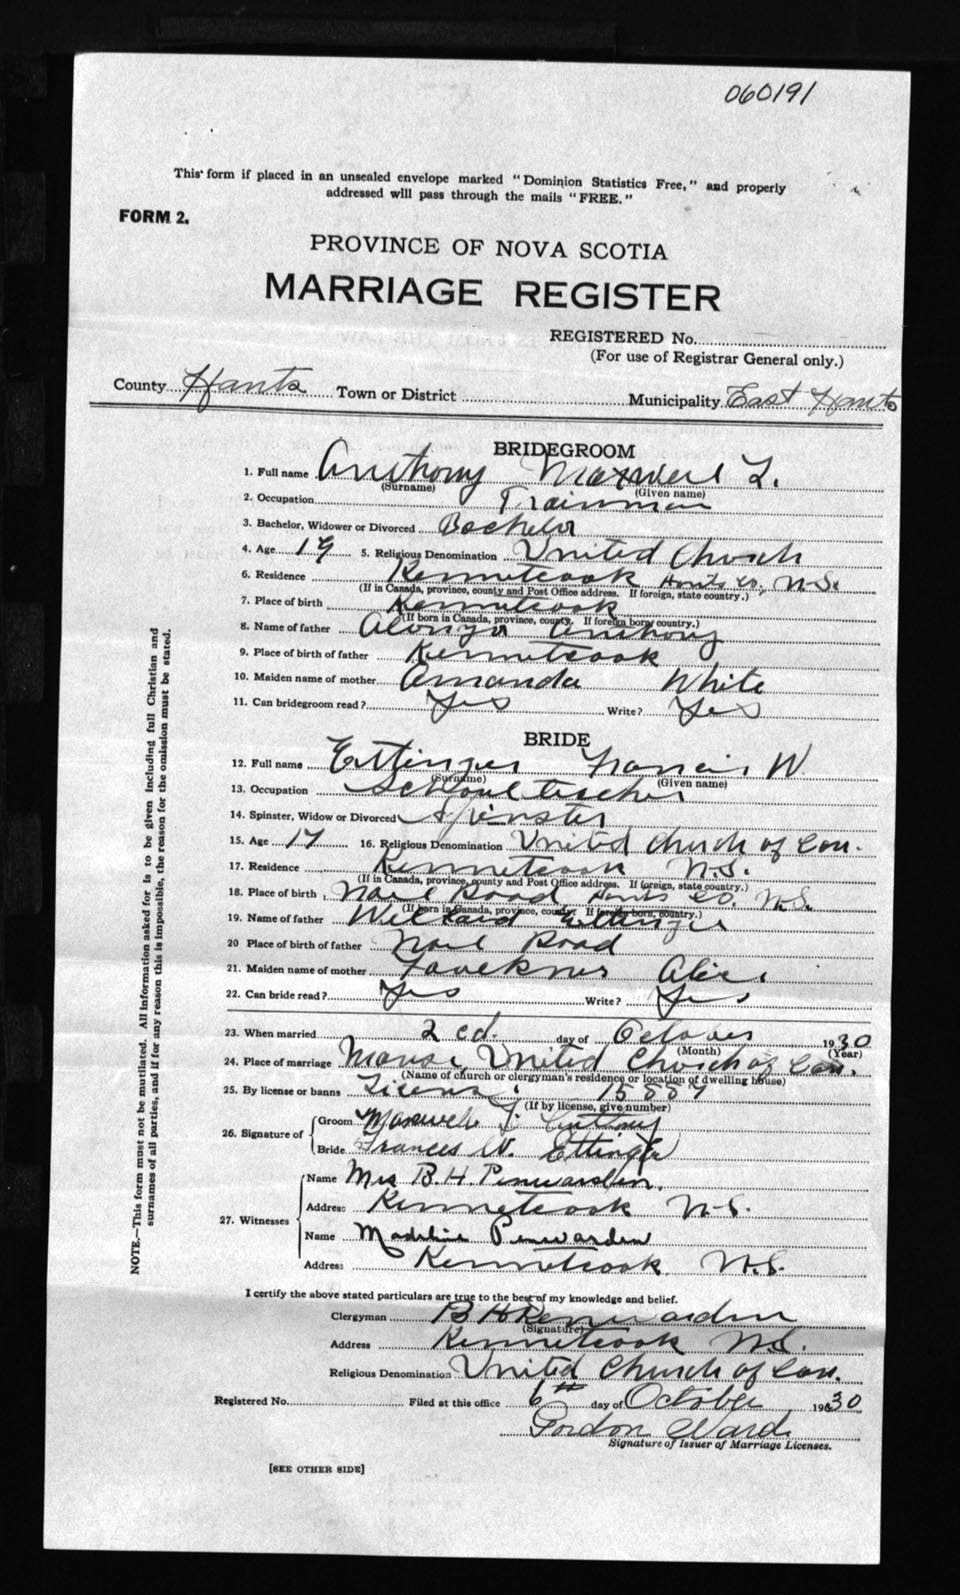 060191
This form if placed in an unsealed envelope marked "Dominion Statistics Free," and properly
addressed will pass through the mails "FREE."
FORM 2.
PROVINCE OF NOVA SCOTIA
MARRIAGE REGISTER
REGISTERED No.
(For use of Registrar General only.)
County Hants Town or District Municipality East Hants
BRIDEGROOM
1. Full name Anthony Maxwell L.
(Surname) (Given name)
2. Occupation Trainman
3. Bachelor, Widower or Divorced Bachelor
4. Age 19 5. Religious Denomination United Church
6. Residence Kennetcook Hants Co, N.S.
(If in Canada, province, county and Post Office address. If foreign, state country.)
7. Place of birth Kennetcook
(If born in Canada, province, county. If foreign born, country.)
8. Name of father Alonzo Anthony
9. Place of birth of father Kennetcook
10. Maiden name of mother Amanda White
11. Can bridegroom read? Yes Write? Yes
BRIDE
12. Full name Ettinger Francis W.
(Surname) (Given name)
13. Occupation School teacher
14. Spinster, Widow or Divorced Spinster
15. Age 17 16. Religious Denomination United Church of Can.
17. Residence Kennetcook N.S.
(If in Canada, province, county and Post Office address. If foreign, state country.)
18. Place of birth Noel Road Hants Co. N.S.
(If born in Canada, province, county. If foreign born, country.)
19. Name of father Willard Ettinger
20 Place of birth of father Noel Road
21. Maiden name of mother Faulkner Alice
22. Can bride read? Yes Write? Yes
23. When married 2cd. day of October 1930
(Month) (Year)
24. Place of marriage Manse, United Church of Can.
(Name of church or clergyman's residence or location of dwelling house)
25. By license or banns License 15887
(If by license, give number)
26. Signature of Groom Maxwell L. Anthony
Bride Frances W. Ettinger
27. Witnesses Name Mrs B. H. Penwarden.
Address Kennetcook N.S.
Name Madeline Penwarden
Address Kennetcook N.S.
I certify the above stated particulars are true to the best of my knowledge and belief.
Clergyman B H Penwarden
(Signature)
Address Kennetcook N.S.
Religious Denomination United Church of Can.
Registered No. Filed at this office 6th day of October 1930
Gordon Ward
Signature of Issuer of Marriage Licenses.
[SEE OTHER SIDE]
NOTE.—This form must not be mutilated. All information asked for is to be given including full Christian and
surnames of all parties, and if for any reason this is impossible, the reason for the omission must be stated.